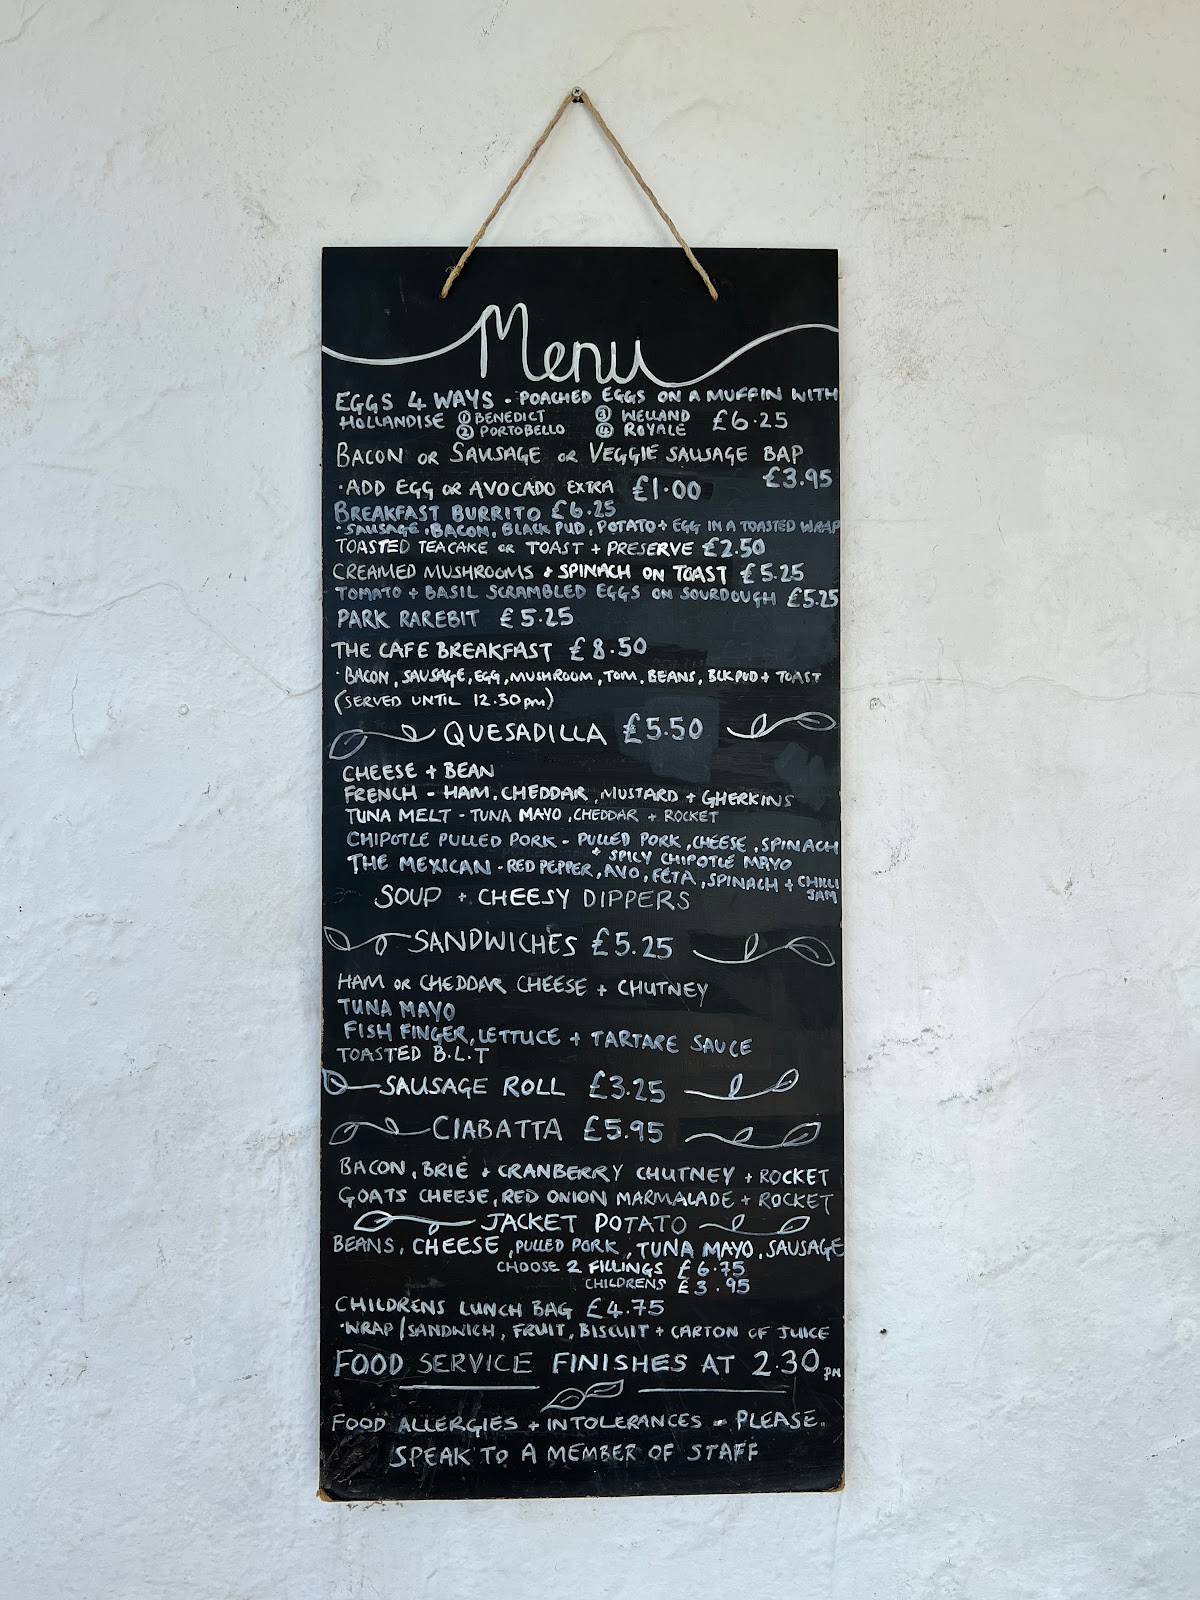 Menu
EGGS 4 WAYS - POACHED EGGS ON A MUFFIN WITH
HOLLANDISE ① BENEDICT ③ WELLAND £6.25
② PORTOBELLO ④ ROYALE
BACON OR SAUSAGE OR VEGGIE SAUSAGE BAP
£3.95
·ADD EGG OR AVOCADO EXTRA £1.00
BREAKFAST BURRITO £6.25
·SAUSAGE, BACON, BLACK PUD, POTATO + EGG IN A TOASTED WRAP
TOASTED TEACAKE OR TOAST + PRESERVE £2.50
CREAMED MUSHROOMS + SPINACH ON TOAST £5.25
TOMATO + BASIL SCRAMBLED EGGS ON SOURDOUGH £5.25
PARK RAREBIT £5.25
THE CAFE BREAKFAST £8.50
·BACON, SAUSAGE, EGG, MUSHROOM, TOM, BEANS, BLK PUD + TOAST
(SERVED UNTIL 12.30pm)
QUESADILLA £5.50
CHEESE + BEAN
FRENCH - HAM, CHEDDAR, MUSTARD + GHERKINS
TUNA MELT - TUNA MAYO, CHEDDAR + ROCKET
CHIPOTLE PULLED PORK - PULLED PORK, CHEESE, SPINACH
+ SPICY CHIPOTLE MAYO
THE MEXICAN - RED PEPPER, AVO, FETA, SPINACH + CHILLI
JAM
SOUP + CHEESY DIPPERS
SANDWICHES £5.25
HAM OR CHEDDAR CHEESE + CHUTNEY
TUNA MAYO
FISH FINGER, LETTUCE + TARTARE SAUCE
TOASTED B.L.T
SAUSAGE ROLL £3.25
CIABATTA £5.95
BACON, BRIE + CRANBERRY CHUTNEY + ROCKET
GOATS CHEESE, RED ONION MARMALADE + ROCKET
JACKET POTATO
BEANS, CHEESE, PULLED PORK, TUNA MAYO, SAUSAGE
CHOOSE 2 FILLINGS £6.75
CHILDRENS £3.95
CHILDRENS LUNCH BAG £4.75
·WRAP/SANDWICH, FRUIT, BISCUIT + CARTON OF JUICE
FOOD SERVICE FINISHES AT 2.30pm
FOOD ALLERGIES + INTOLERANCES - PLEASE
SPEAK TO A MEMBER OF STAFF